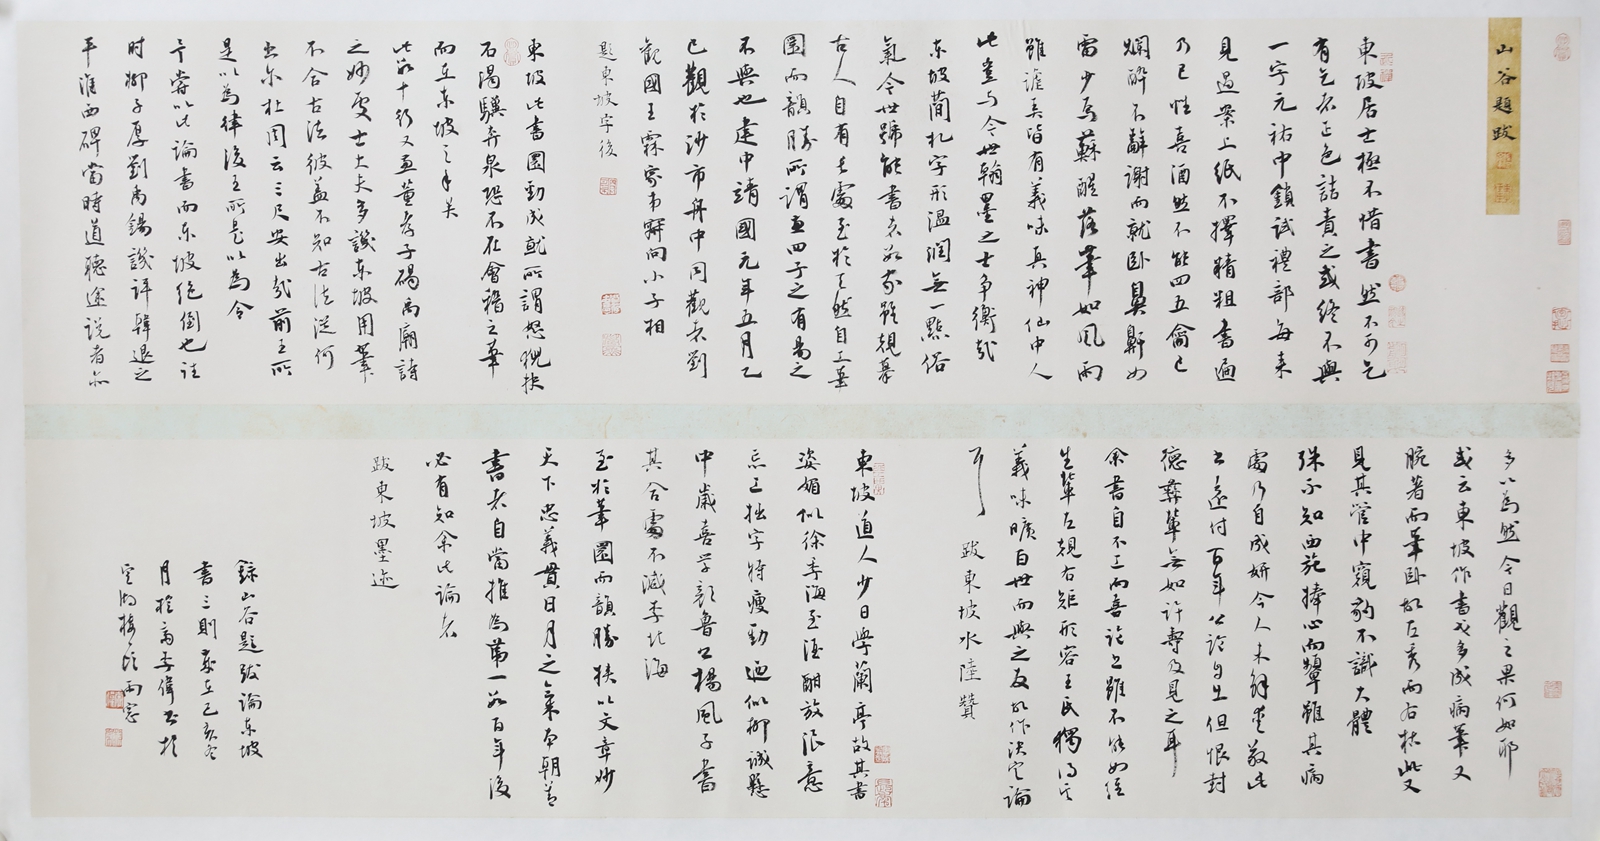 山谷題跋
東坡居士極不惜書然不可乞
有乞書者正色詰責之或終不與
一字元祐中鎖試禮部每來
見過案上紙不擇精粗書遍
乃已性喜酒然不能四五龠已
爛醉不辭謝而就臥鼻鼾如
雷少焉蘇醒落筆如風雨
雖謔弄皆有義味真神仙中人
此豈与今世翰墨之士争衡哉
东坡蕳札字形溫潤無一點俗
氣今世號能書者數家雖規摹
古人自有長處至於天然自工筆
圓而韻勝所謂兼四子之有易之
不與也建中靖國元年五月乙
巳觀於沙市舟中同觀者劉
觀國王霖家弟嗣向小子相
題東坡字後
東坡此書圓勁成就所謂怒猊抉
石渴驥奔泉恐不在會稽之筆
而在东坡之手矣
此數十行又兼董孝子碣禹廟詩
之妙處士大夫多譏东坡用筆
不合古法彼蓋不知古法從何
出尔杜周云三尺安出哉前王所
是以為律後王所是以為令
予嘗以此論書而东坡絕倒也往
时柳子厚劉禹錫譏評韓退之
平淮西碑當時道聽途説者亦
多以為然今日觀之果何如耶
或云東坡作書戈多成病筆又
腕著而筆臥故左秀而右枯此又
見其管中窺豹不識大體
殊不知西施捧心而顰雖其病
處乃自成妍今人未解愛敬此
書遠付百年公論自出但恨封
德彝輩無如許壽及見之耳
余書自不工而喜論書雖不能如經
生輩左規右矩形容王氏獨得其
義味曠百世而與之友故作決定論
耳
跋東坡水陸贊
東坡道人少日學蘭亭故其書
姿媚似徐季海至酒酣放浪意
忘工拙字特瘦勁迺似柳誠懸
中歲喜学顏魯公楊風子書
其合處不減李北海
至於筆圓而韻勝挾以文章妙
天下忠義貫日月之氣本朝善
書者自當推為第一數百年後
必有知余此論者
跋東坡墨迹
錄山谷題跋論东坡
書三則歲在己亥冬
月於
雨窓